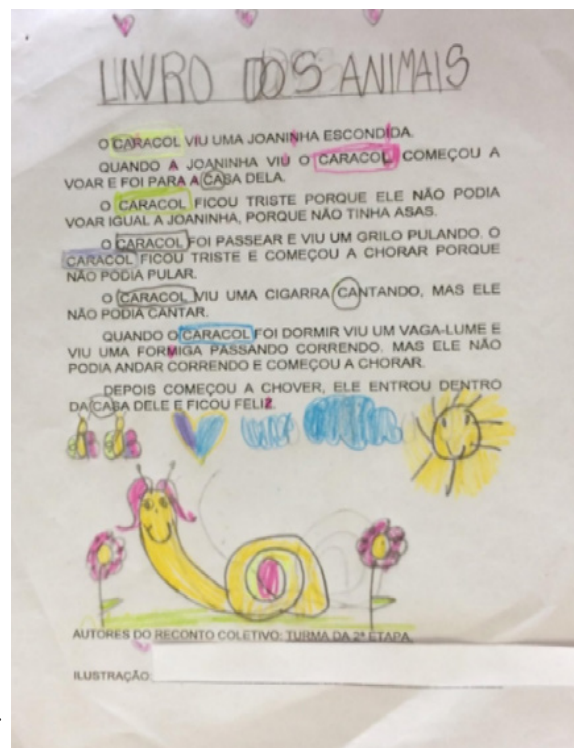 LIVRO DOS ANIMAIS
O CARACOL VIU UMA JOANINHA ESCONDIDA.
QUANDO A JOANINHA VIU O CARACOL COMEÇOU A
VOAR E FOI PARA A CASA DELA.
O CARACOL FICOU TRISTE PORQUE ELE NÃO PODIA
VOAR IGUAL A JOANINHA, PORQUE NÃO TINHA ASAS.
O CARACOL FOI PASSEAR E VIU UM GRILO PULANDO. O
CARACOL FICOU TRISTE E COMEÇOU A CHORAR PORQUE
NÃO PODIA PULAR.
O CARACOL VIU UMA CIGARRA CANTANDO, MAS ELE
NÃO PODIA CANTAR.
QUANDO O CARACOL FOI DORMIR VIU UM VAGA-LUME E
VIU UMA FORMIGA PASSANDO CORRENDO. MAS ELE NÃO
PODIA ANDAR CORRENDO E COMEÇOU A CHORAR.
DEPOIS COMEÇOU A CHOVER, ELE ENTROU DENTRO
DA CASA DELE E FICOU FELIZ.
AUTORES DO RECONTO COLETIVO: TURMA DA 2ª ETAPA.
ILUSTRAÇÃO: